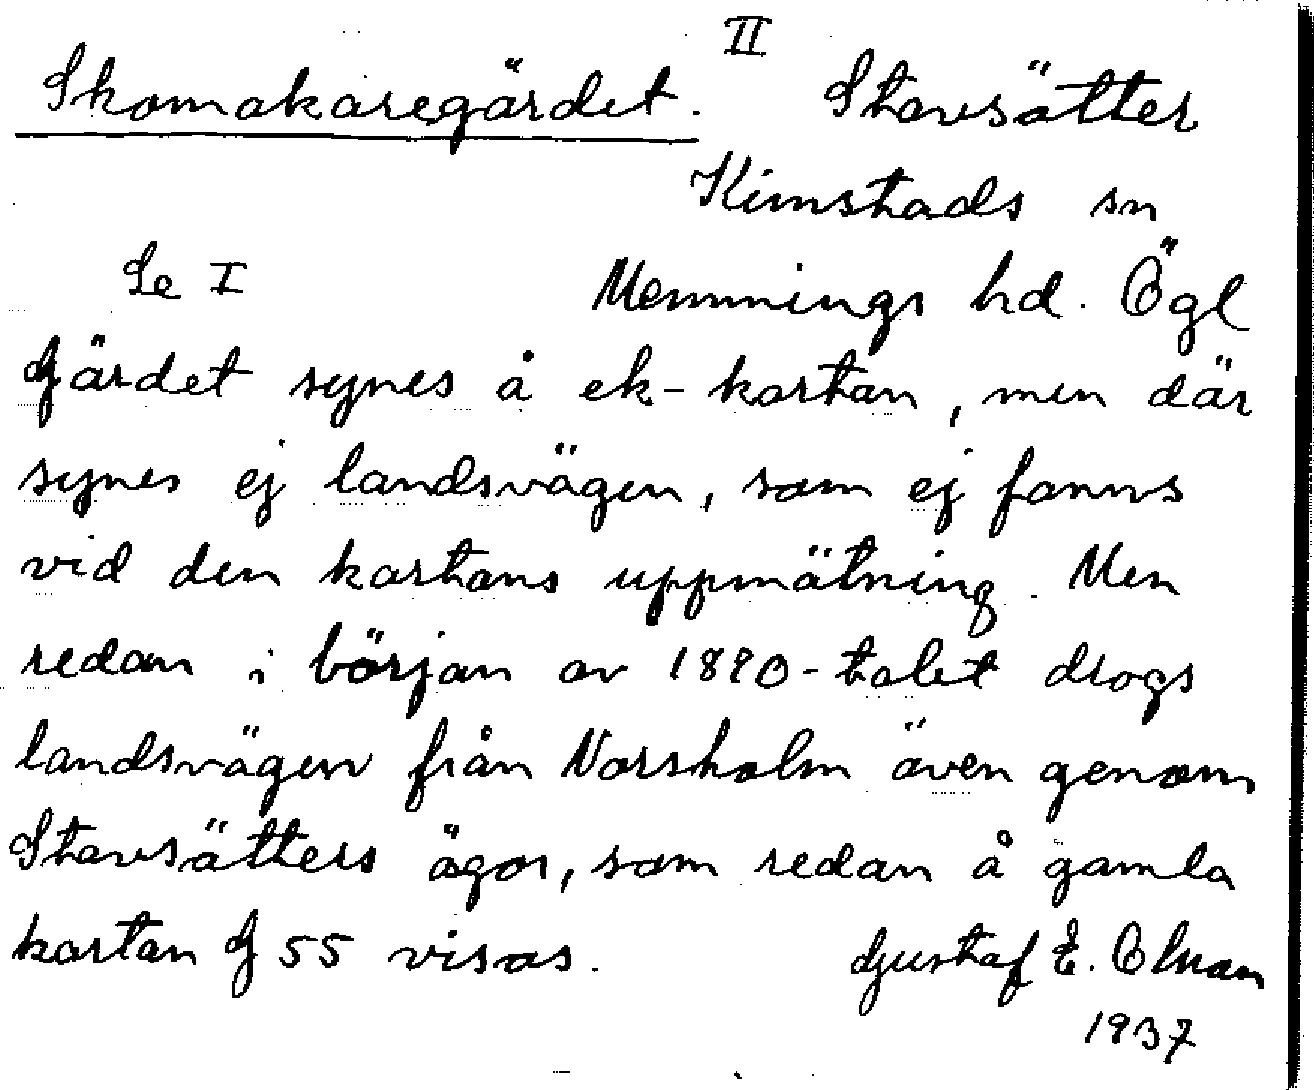 II
Skomakaregärdet. Stavsätter
Kimstads sn
Se I Memmings hd. Ögl
Gärdet synes å ek-kartan, men där
synes ej landsvägen, som ej fanns
vid den kartans uppmätning. Men
redan i början av 1880-talet drogs
landsvägen från Norsholm även genom
Stavsätters ägor, som redan å gamla
kartan G 55 visas. Gustaf E.
1937